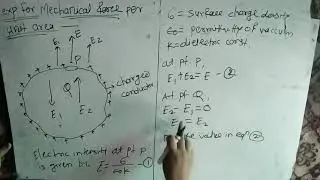 Exp for Mechanical force per
unit area
E
E1
E2
P
Q
E1
E2
charged
conductor
Electric intensity at pt P
is given by E = σ/ε0k —①
σ = surface charge density
ε0 = permittivity of vaccum
K = dielectric const.
at pt P,
E1 + E2 = E —②
At pt Q,
E2 - E1 = 0
E1 = E2
value in eqn ②